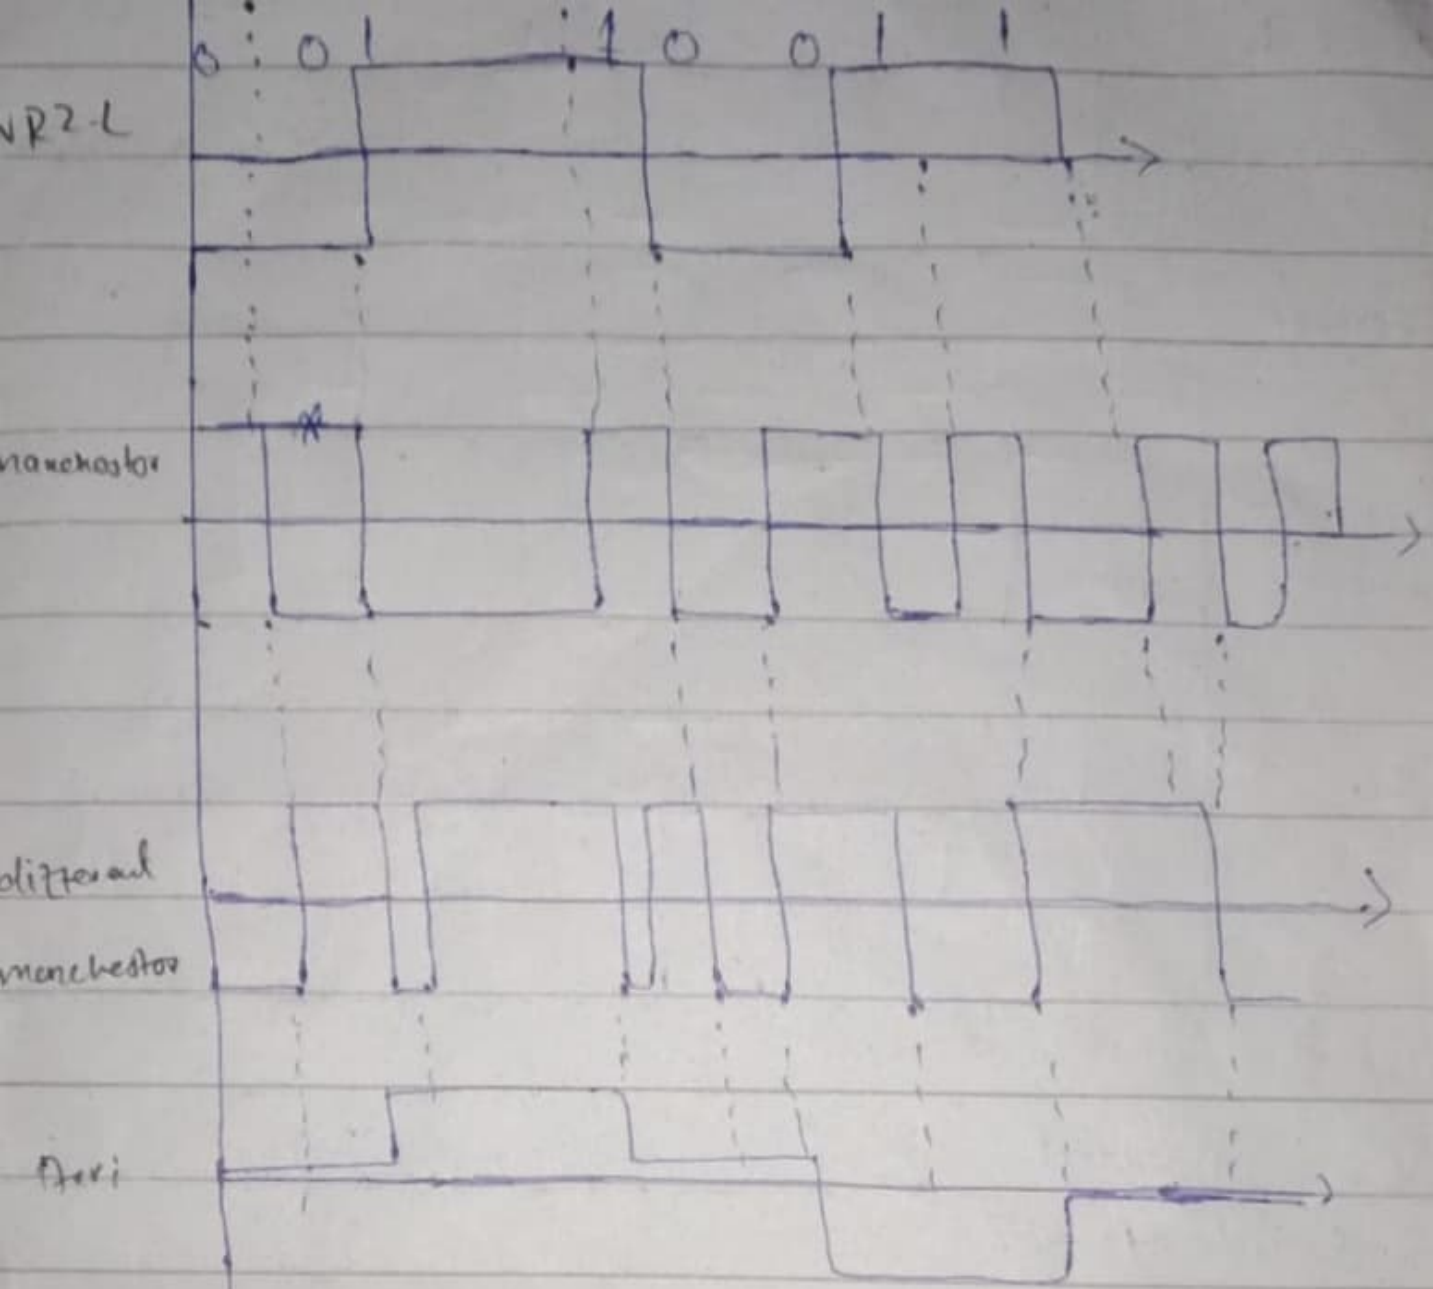 0 0 1 1 0 0 1 1
NRZ-L
manchestor
differenal
manchestor